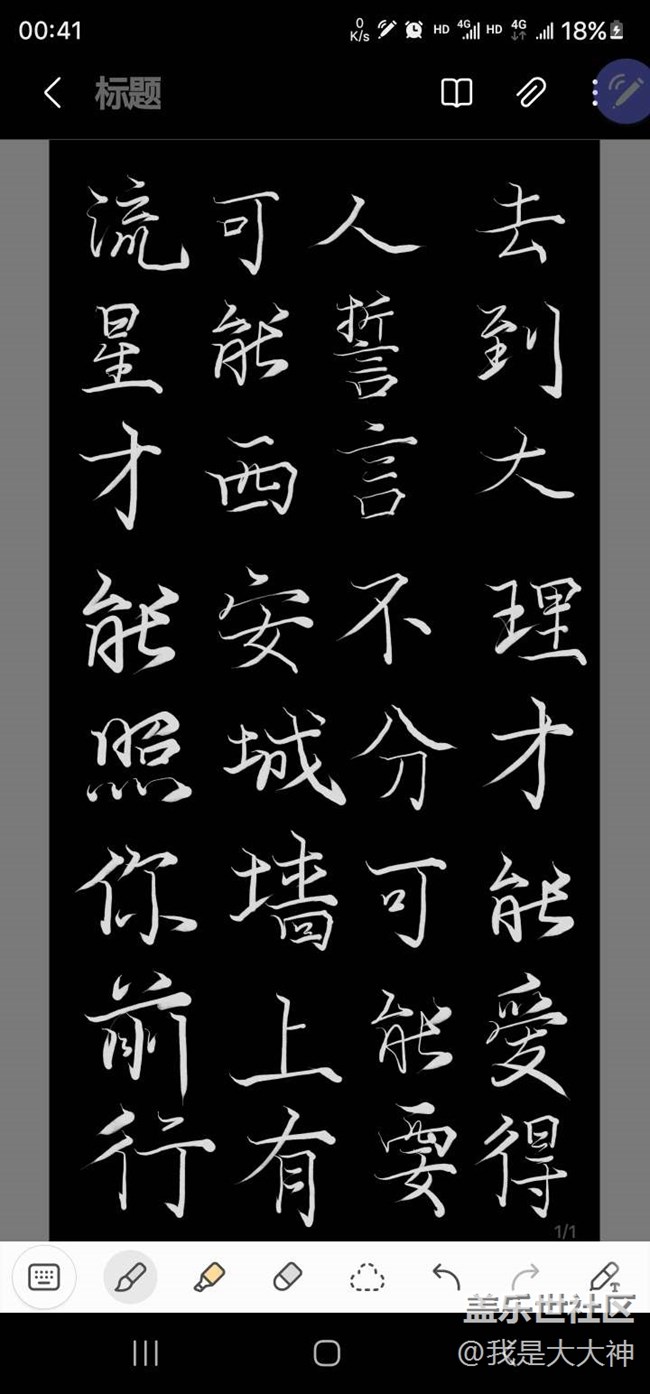 00:41
0 K/s HD 4G HD 4G 18%
标题
流星才能照你前行
可能西安城墙上有
人誓言不分可能要
去到大理才能爱得
1/1
T
盖乐世社区
@我是大大神